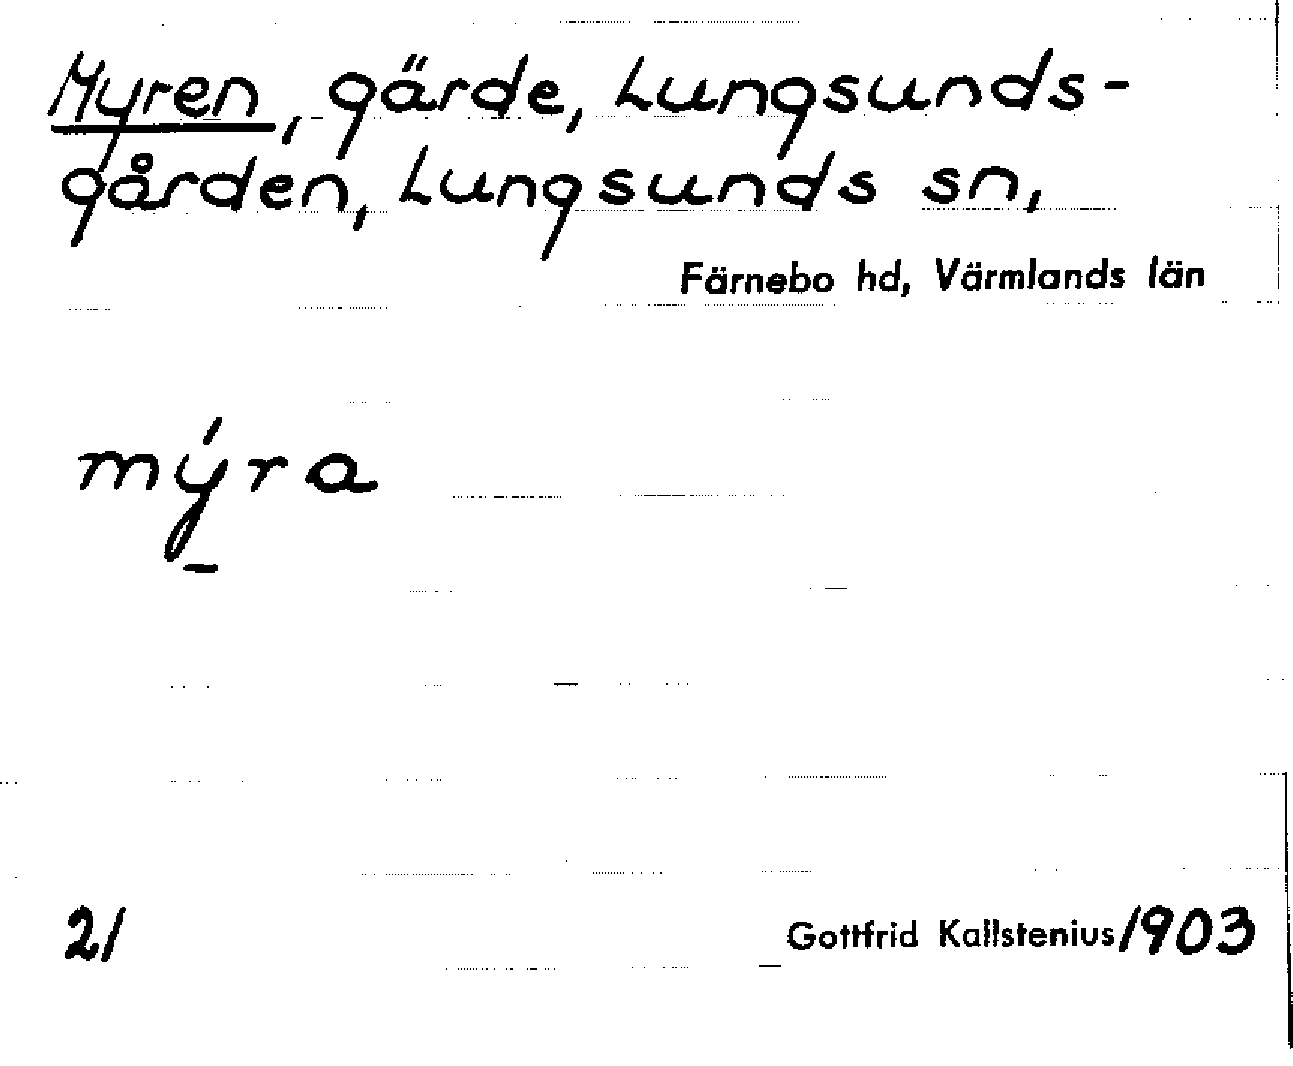 Myren, gärde, Lungsunds-
gården, Lungsunds sn,
Färnebo hd, Värmlands län
mýra
21
Gottfrid Kallstenius 1903